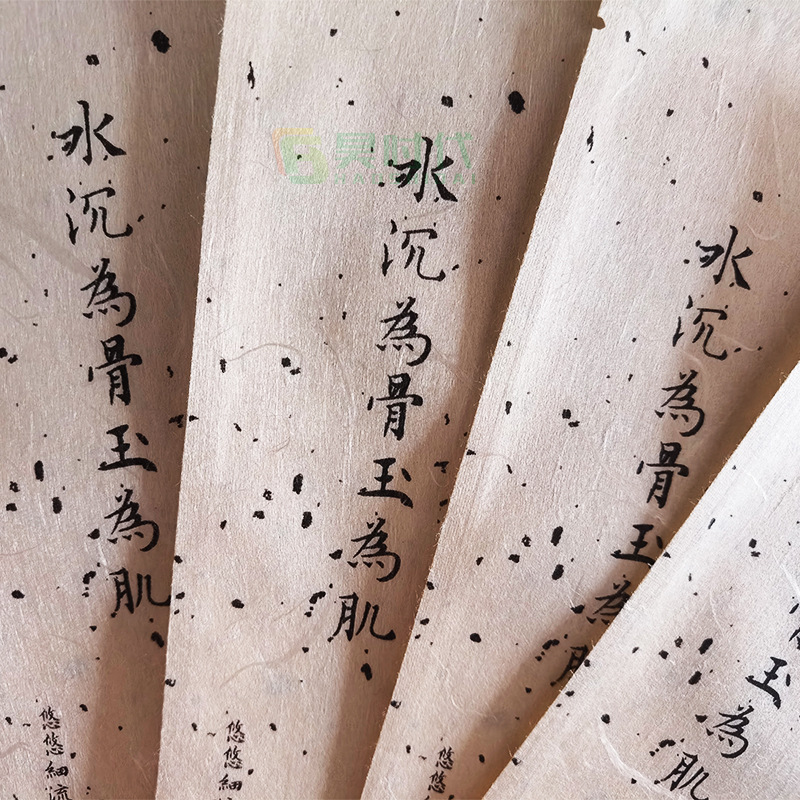 水沉為骨玉為肌
悠悠細流
水沉為骨玉為肌
悠悠細
水沉為骨玉為
悠悠
玉為肌